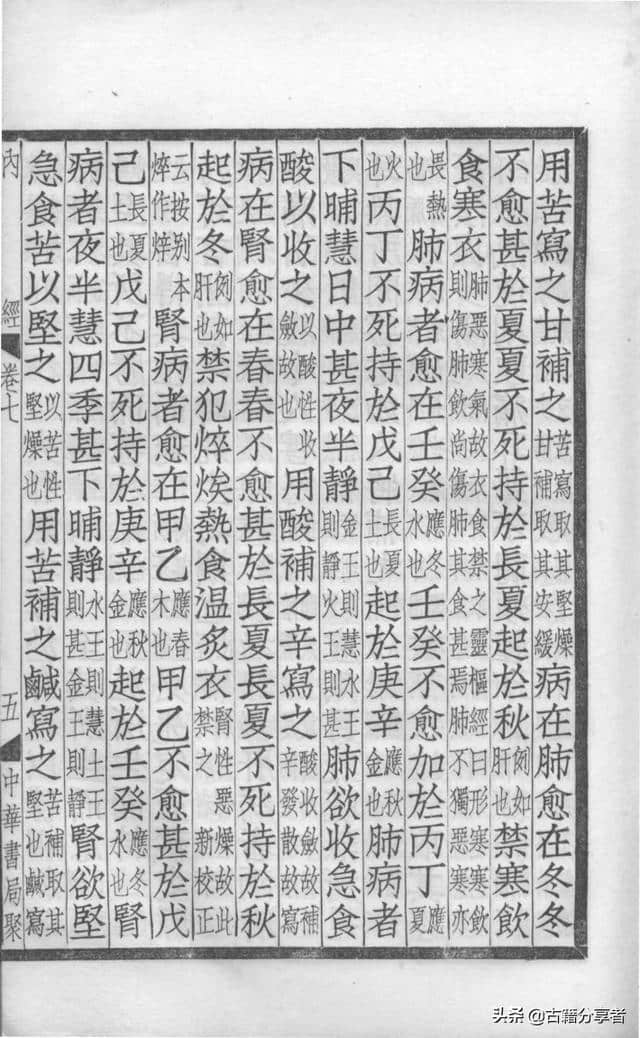 用苦寫之甘補之苦寫取其堅燥甘補取其安緩病在肺愈在冬冬
不愈甚於夏夏不死持於長夏起於秋例如肝也禁寒飲
食寒衣肺惡寒氣故衣食禁之靈樞經曰形寒寒飲則傷肺飲尚傷肺其食甚焉肺不獨惡寒亦
畏熱也肺病者愈在壬癸應冬水也壬癸不愈加於丙丁應夏
火也丙丁不死持於戊己長夏土也起於庚辛應秋金也肺病者
下晡慧日中甚夜半靜金王則慧水王則靜火王則甚肺欲收急食
酸以收之以酸性收斂故也用酸補之辛寫之酸收斂故補辛發散故寫
病在腎愈在春春不愈甚於長夏長夏不死持於秋
起於冬例如肝也禁犯焠㶼熱食温炙衣腎性惡燥故此禁之 新校正
云按別本焠作焠腎病者愈在甲乙應春木也甲乙不愈甚於戊
己長夏土也戊己不死持於庚辛應秋金也起於壬癸應冬水也腎
病者夜半慧四季甚下晡靜水王則慧土王則甚金王則靜腎欲堅
急食苦以堅之以苦性堅燥也用苦補之鹹寫之苦補取其堅也鹹寫
內 經 卷七 五 中華書局聚
头条@古籍分享者